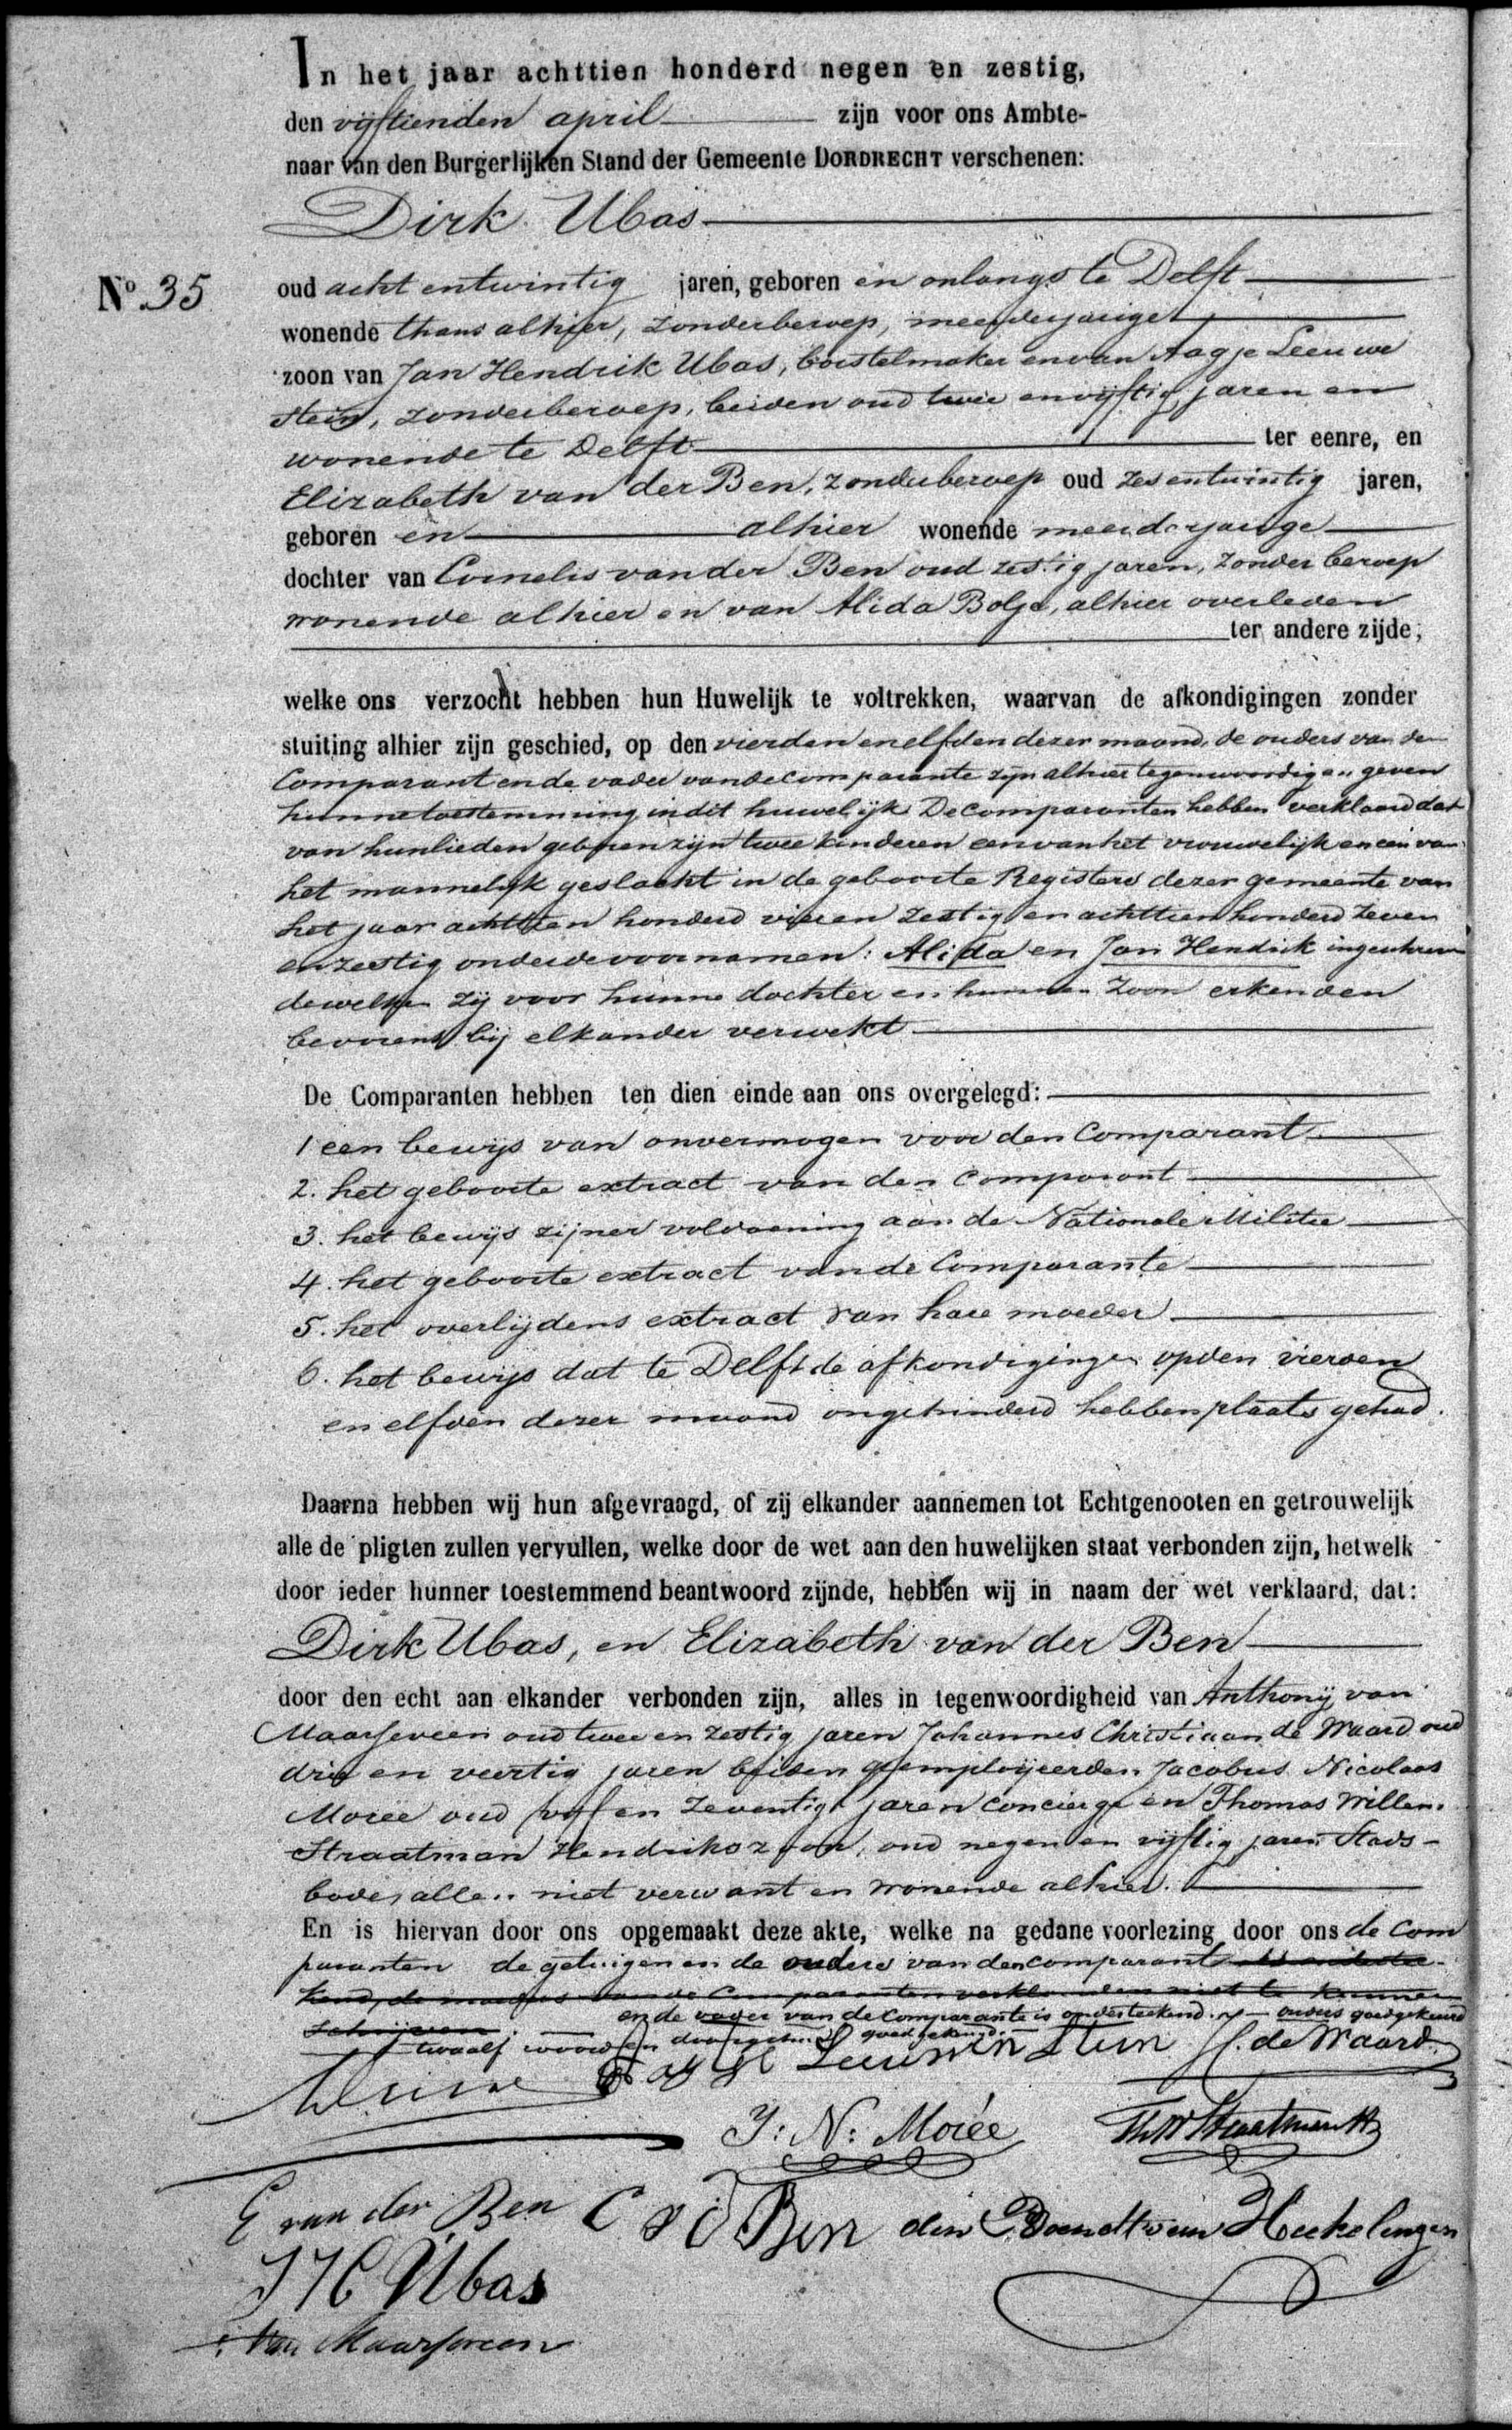 In het jaar achttien honderd negen en zestig,
den vijftienden april zijn voor ons Ambte-
naar van den Burgerlijken Stand der Gemeente DORDRECHT verschenen:
Dirk Ubas
No. 35
oud acht entwintig jaren, geboren en onlangs te Delft
wonende thans alhier, zonderberoep, meerderjarige
zoon van Jan Hendrik Ubas, borstelmaker en van Aagje Leeuwe
stein, zonderberoep, beiden oud twee envijftig jaren en
wonende te Delft ter eenre, en
Elizabeth van der Ben, zonderberoep oud zesentwintig jaren,
geboren en alhier wonende meerderjarige
dochter van Cornelis van der Ben oud zestig jaren, zonder beroep
wonende alhier en van Alida Bolje, alhier overleden
ter andere zijde,
welke ons verzocht hebben hun Huwelijk te voltrekken, waarvan de afkondigingen zonder
stuiting alhier zijn geschied, op den vierden en elfden dezer maand, de ouders van den
Comparant en de vader van de comparante zijn alhier tegenwoordig en geven
hunne toestemming in dit huwelijk De comparanten hebben verklaard dat
van hunlieden geboren zijn twee kinderen een van het vrouwelijk en een van
het mannelijk geslacht in de geboorte Registers dezer gemeente van
het jaar achttien honderd vier en zestig en achttien honderd zeven
en zestig onder de voornamen: Alida en Jan Hendrik ingeschreven
dewelke zij voor hunne dochter en hunnen zoon erkenden
bevorens bij elkander verwekt
De Comparanten hebben ten dien einde aan ons overgelegd:
1 een bewijs van onvermogen voor den Comparant
2. het geboorte extract van den comparant
3. het bewijs zijner voldoening aan de Nationale Militie
4. het geboorte extract van de Comparante
5. het overlijdens extract van hare moeder
6. het bewijs dat te Delft de afkondigingen op den vierden
en elfden dezer maand ongehinderd hebben plaats gehad.
Daarna hebben wij hun afgevraagd, of zij elkander aannemen tot Echtgenooten en getrouwelijk
alle de pligten zullen vervullen, welke door de wet aan den huwelijken staat verbonden zijn, hetwelk
door ieder hunner toestemmend beantwoord zijnde, hebben wij in naam der wet verklaard, dat:
Dirk Ubas, en Elizabeth van der Ben
door den echt aan elkander verbonden zijn, alles in tegenwoordigheid van Anthonij van
Maarseveen oud twee en zestig jaren Johannes Christiaan de Waard oud
drie en veertig jaren beiden geemploijeerden Jacobus Nicolaas
Moree oud vijf en zeventig jaren concierge en Thomas Willem
Straatman Hendrikszoon, oud negen en vijftig jaren Stads-
bode, allen niet verwant en wonende alhier.
En is hiervan door ons opgemaakt deze akte, welke na gedane voorlezing door ons de Com
paranten de getuigen en de ouders van den comparant is onderteekend, de moeder van de Comparanten verklaarden niet te kunnen
schrijven en de vader van de Comparante is onderteekend. ouders goedgekeurd
twaalf woorden doorgehaald goedgekeurd.
Aagje Leeuwen Stein J.C. de Waard
J: N: Morée Th W Straatman Hz
E van der Ben C vd Ben den Bandt van Heekelingen
J H Ubas
A. Van Maarseveen